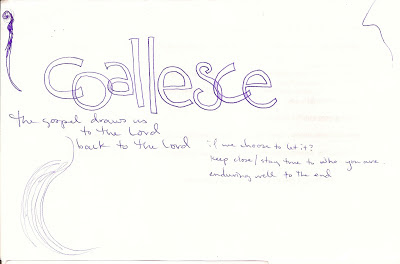 coallesce
the gospel draws us
to the Lord
back to the Lord
if we choose to let it?
keep close/stay true to who you are.
enduring well to the end